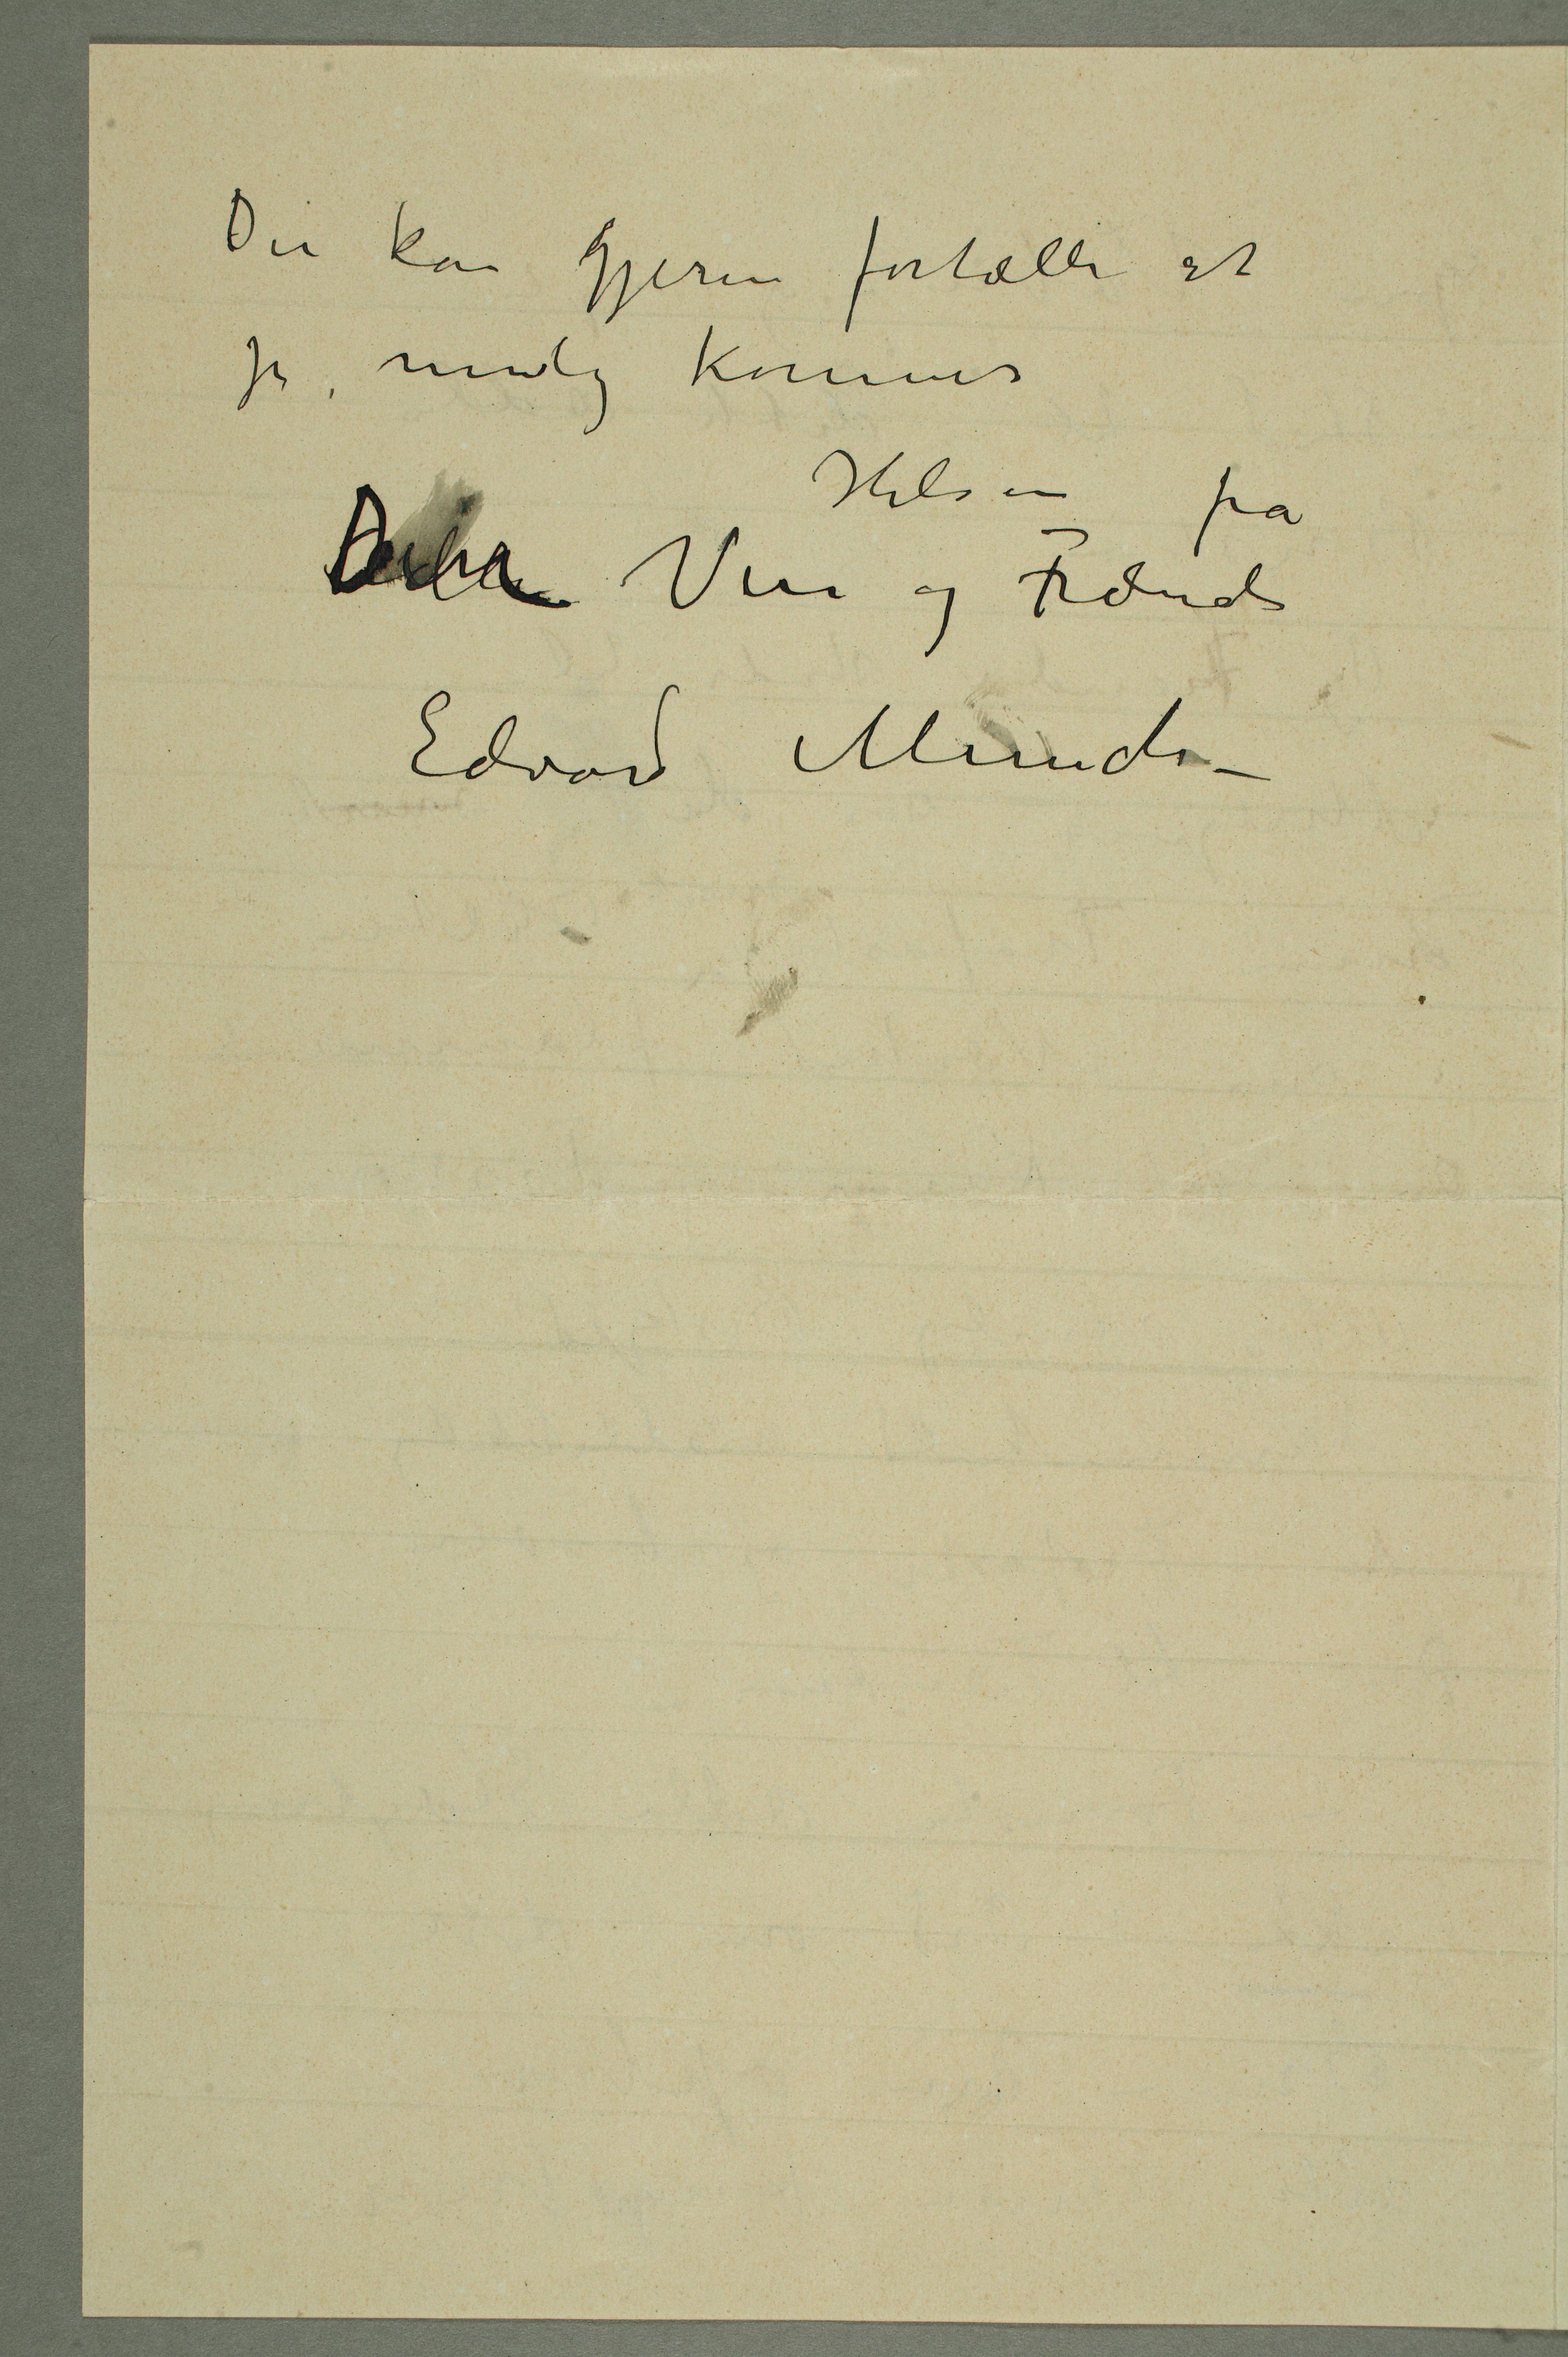 Du kan gjerne fortælle at
jeg mulig kommer
Hilsen fra
Din Ven og Frænde
Edvard Munch –